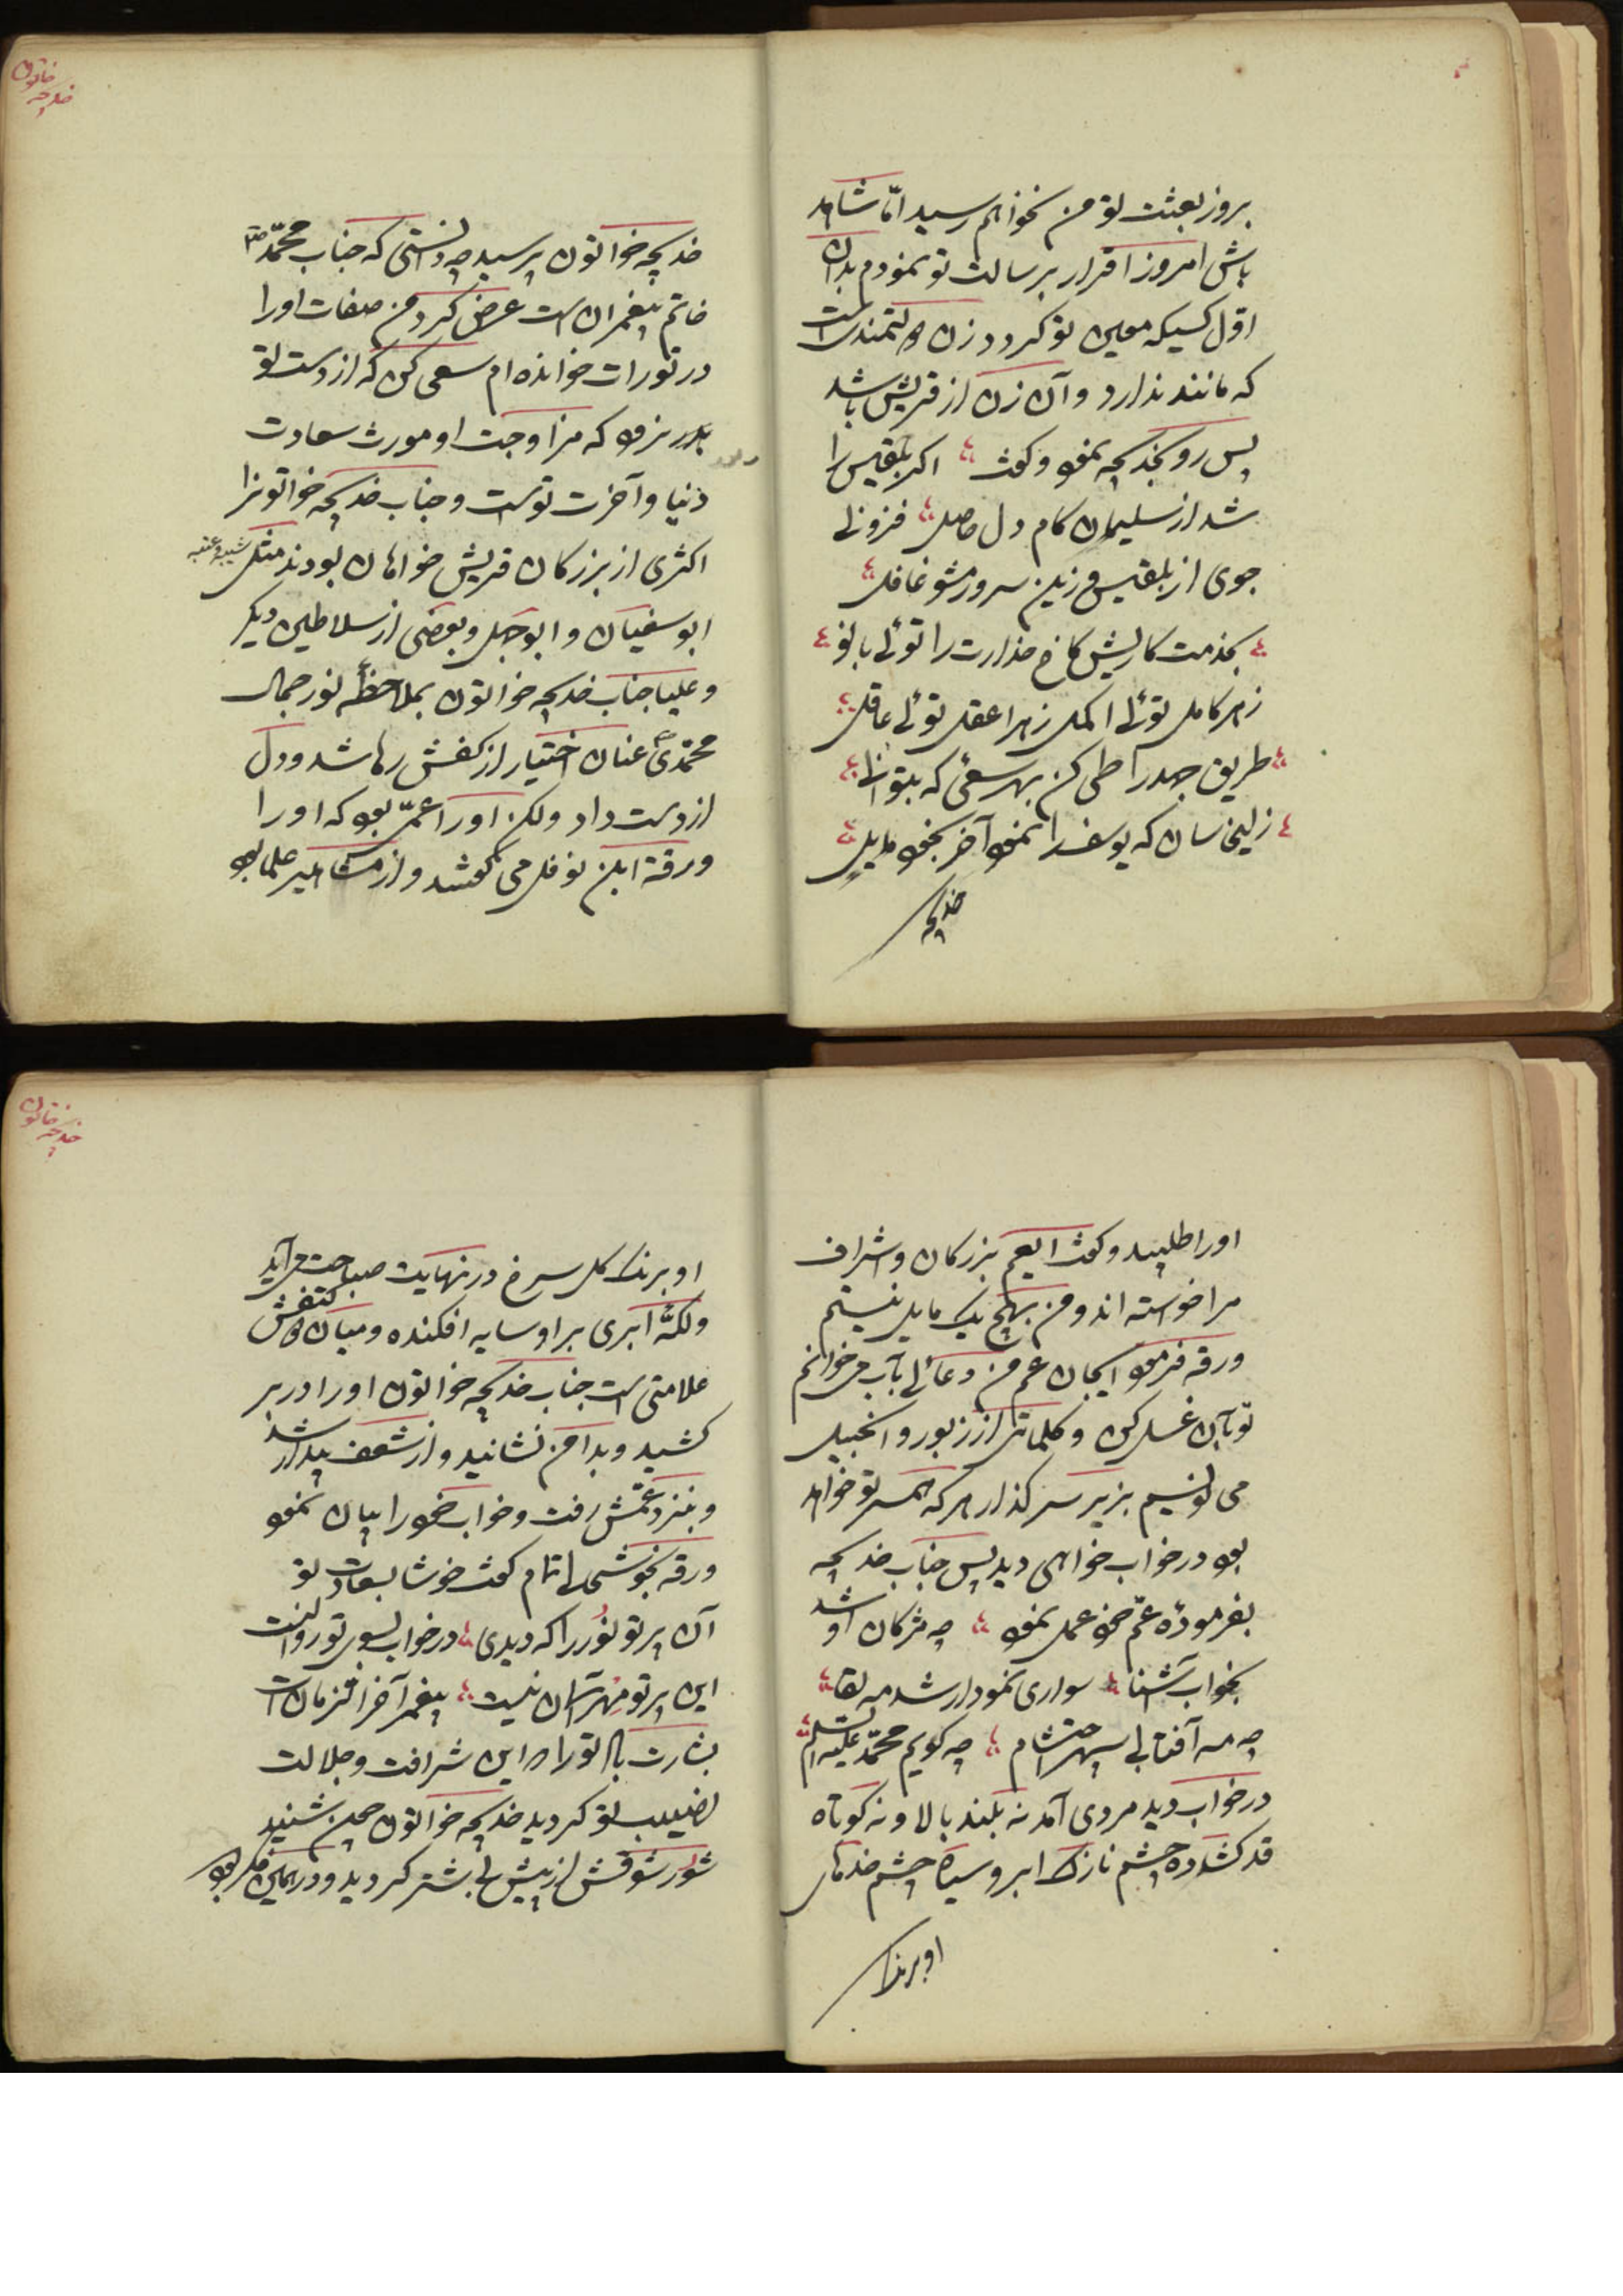 بروز بعثت تو من نخواهم رسید امّا شاهد
باش امروز اقرار برسالت تو نمودم بدان
اوّل کسیکه معین تو کردد زن دولتمندیست
که مانند ندارد و آن زن از قریش باشد
پس رو بخدیجه نمود و کفت اکر بلقیس را
شد از سلیمان کام دل حاصل فزونی
جوی از بلقیس و زین سرور مشو غافل
بخدمت کاریش کاخ صدارت را توئی بانو
زهر کامل توئی اکمل زهر اعقل توئی عاقل
طریق جهد را طی کن بهر سعئی که بتوانی
زلیخا سان که یوسف را نمود آخر بخود مایل
خدیجه
خاتون
خدیجه
خدیجه خواتون پرسید چه دانستی که جناب محمّد ص
خاتم پیغمبران است عرض کرد من صفات او را
در تورات خوانده ام سعی کن که از دست تو
بدر نرود که مزاوجت او مورث سعادت
دنیا و آخرت توست و جناب خدیجه خواتونرا
اکثری از بزرکان قریش خواهان بودند مثل شیبه و عتبه
ابوسفیان و ابوجهل و بعضی از سلاطین دیکر
و علیا جناب خدیجه خواتون بملاحظهٔ نور جمال
محمّدی عنان اختیار از کفش رها شد و دل
از دست داد ولکن او را عمّی بود که او را
ورقة ابن نوفل می کفتند و از مشاهیر علما بود
او را طلبید و کفت ایعم بزرکان و اشراف
مرا خواسته اند و من بهیچ یک مایل نیستم
ورقه فرمود ایجان عم من دعائی بآب می خوانم
تو بآن غسل کن و کلماتی از زبور و انجیل
می نویسم بزیر سر کذار هر که همسر تو خواهد
بود در خواب خواهی دید پس جناب خدیجه
بفرمودهٔ عمّ خود عمل نمود چه مژکان او شد
بخواب آشنا سواری نمودار شد مه لقا
چه مه آفتابی سپهر احتشام چه کویم محمّد علیه السلام
در خواب دید مردی آمد نه بلند بالا و نه کوتاه
قد کشاده چشم نازک ابرو سیاه چشم خدهای
او برنک
خاتون
خدیجه
او برنک کل سرخ در نهایت صباحت می آید
و لکّه ابری بر او سایه افکنده و میان دو کتفش
علامتی است جناب خدیجه خواتون او را در بر
کشید و بدامن نشانید و از شعف بیدار شد
و بنزد عمّش رفت و خواب خود را بیان نمود
ورقه بخوشحالی تمام کفت خوشا بسعادت تو
آن پرتو نور را که دیدی در خواب بسوی تو روانست
این پرتو مهر آسمان نیست پیغمبر آخر الزمان است
بشارت باد تو را که این شرافت و جلالت
نصیب تو کردید خدیجه خواتون چون شنید
شور شوقش از پیش بیشتر کردید و در همین فکر بود